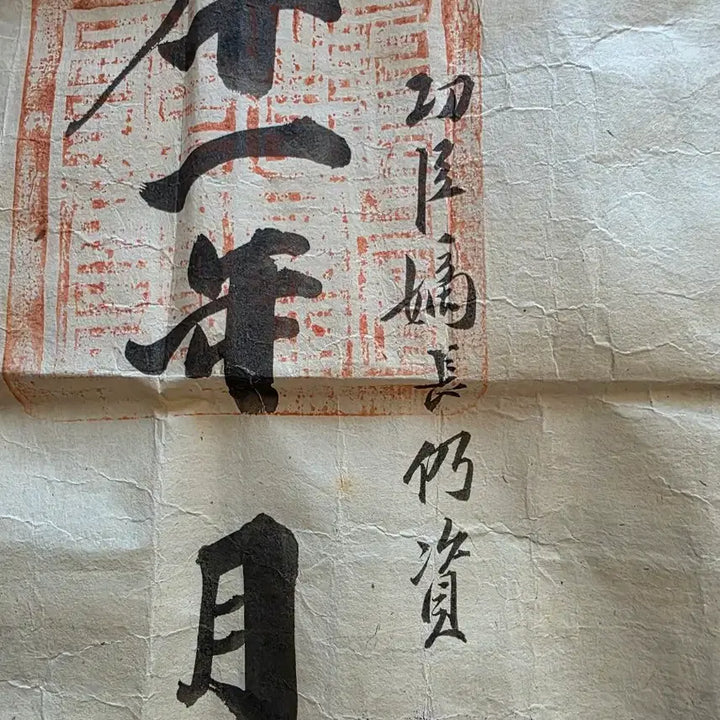 功臣嫡長仍資
十一年 月